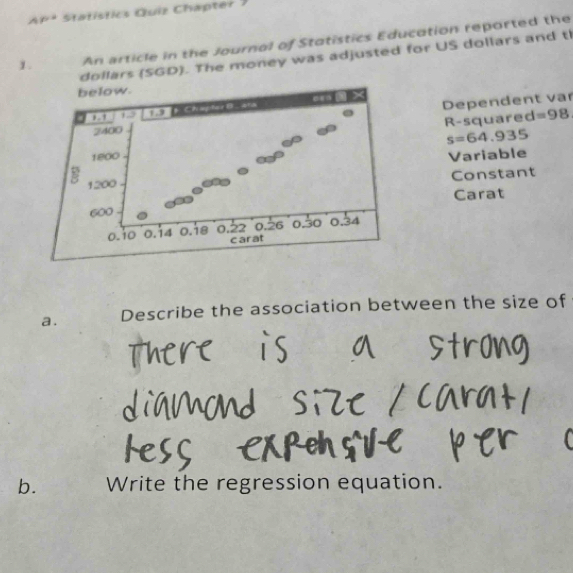 AP* Statistics Quiz Chapter
1. An article in the Journal of Statistics Education reported the
dollars (SGD). The money was adjusted for US dollars and t
below.
1.1 1.2 1.3 Chapter
2400
1800
1200
600
cost
0.10 0.14 0.18 0.22 0.26 0.30 0.34
carat
Dependent var
R-squared=98.
s=64.935
Variable
Constant
Carat
a. Describe the association between the size of
There is a strong
diamond size / carat/
less expensive per
b. Write the regression equation.